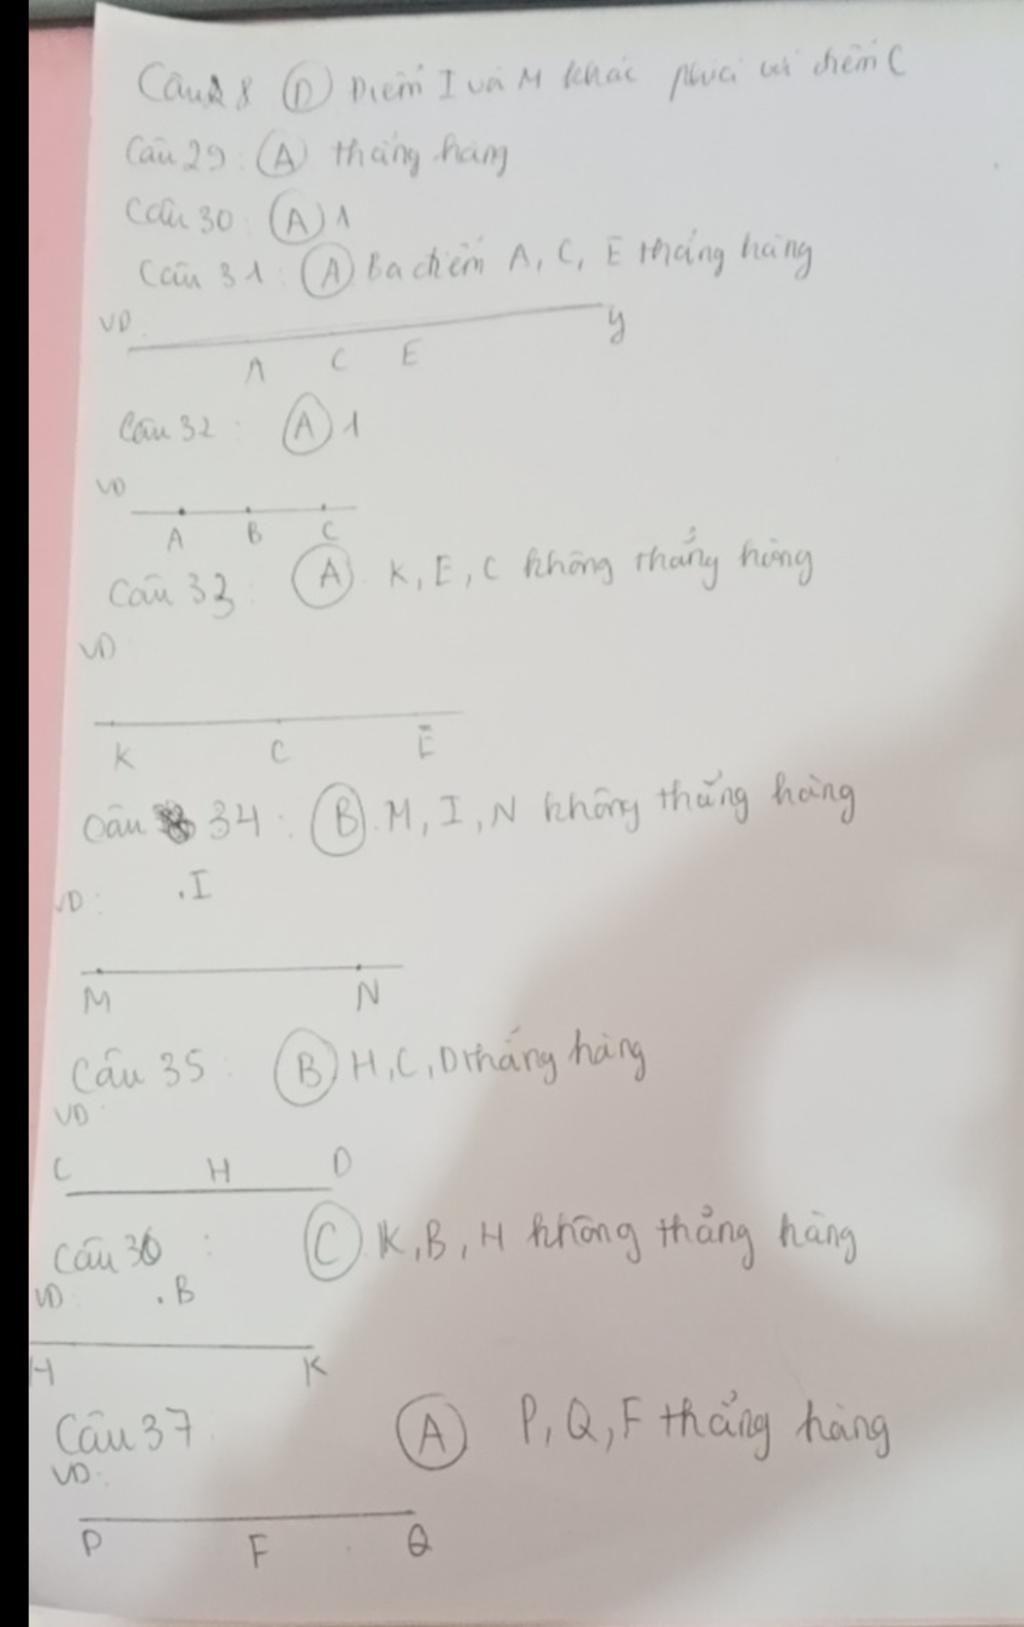 Câu 28 (D) Điểm I và M khác phía với điểm C
Câu 29: (A) thẳng hàng
Câu 30: (A) 1
Câu 31: (A) Ba điểm A, C, E thẳng hàng
VD:
y
A C E
Câu 32: (A) 1
VD
A B C
Câu 33: (A). K, E, C không thẳng hàng
VD
K C E
Câu 34: (B). M, I, N không thẳng hàng
VD: .I
M N
Câu 35: (B) H, C, D thẳng hàng
VD:
C H D
Câu 36: (C). K, B, H không thẳng hàng
VD: .B
H K
Câu 37 (A) P, Q, F thẳng hàng
VD:
P F Q